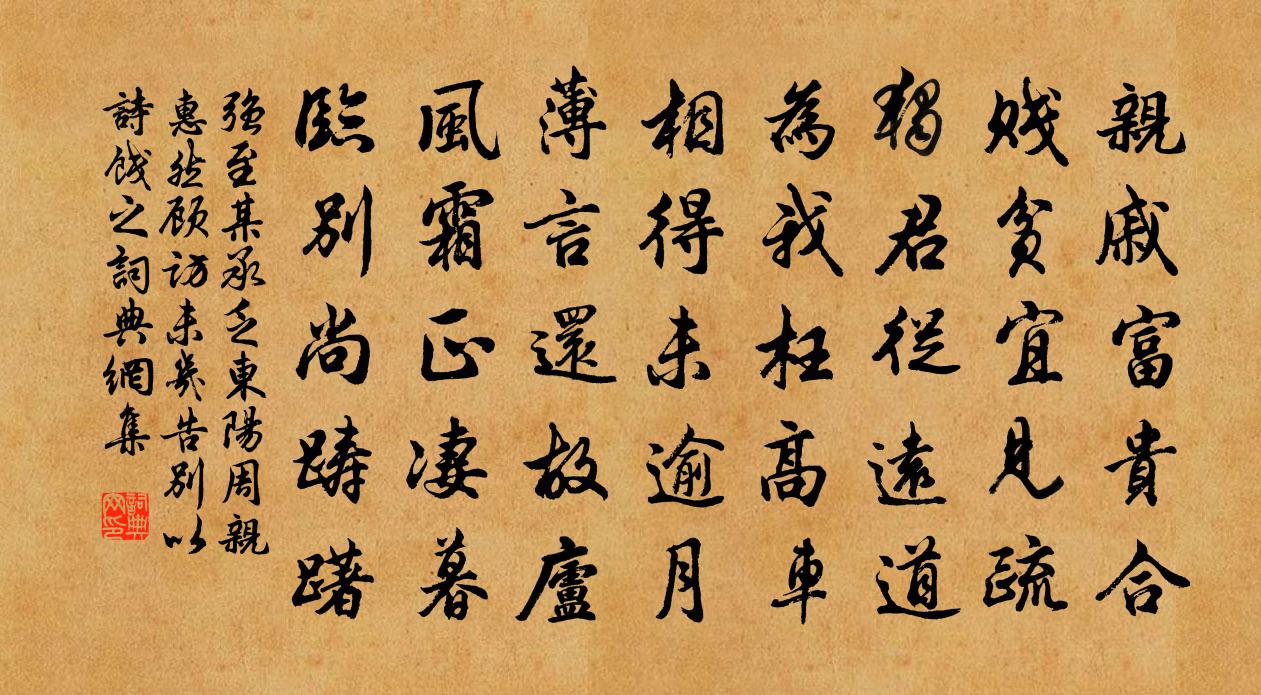 親戚富貴合
賤貧宜見疏
獨君從遠道
為我枉高車
相得未逾月
薄言還故廬
風霜正凄暮
臨別尚躊躇
强至某承乏東陽周親
惠然顧訪未幾告別以
詩餞之詞典網集
詞典
网印